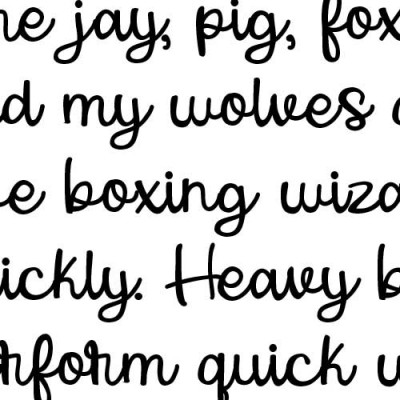 he jay, pig, fox
d my wolves a
e boxing wiza
ickly. Heavy b
rform quick w